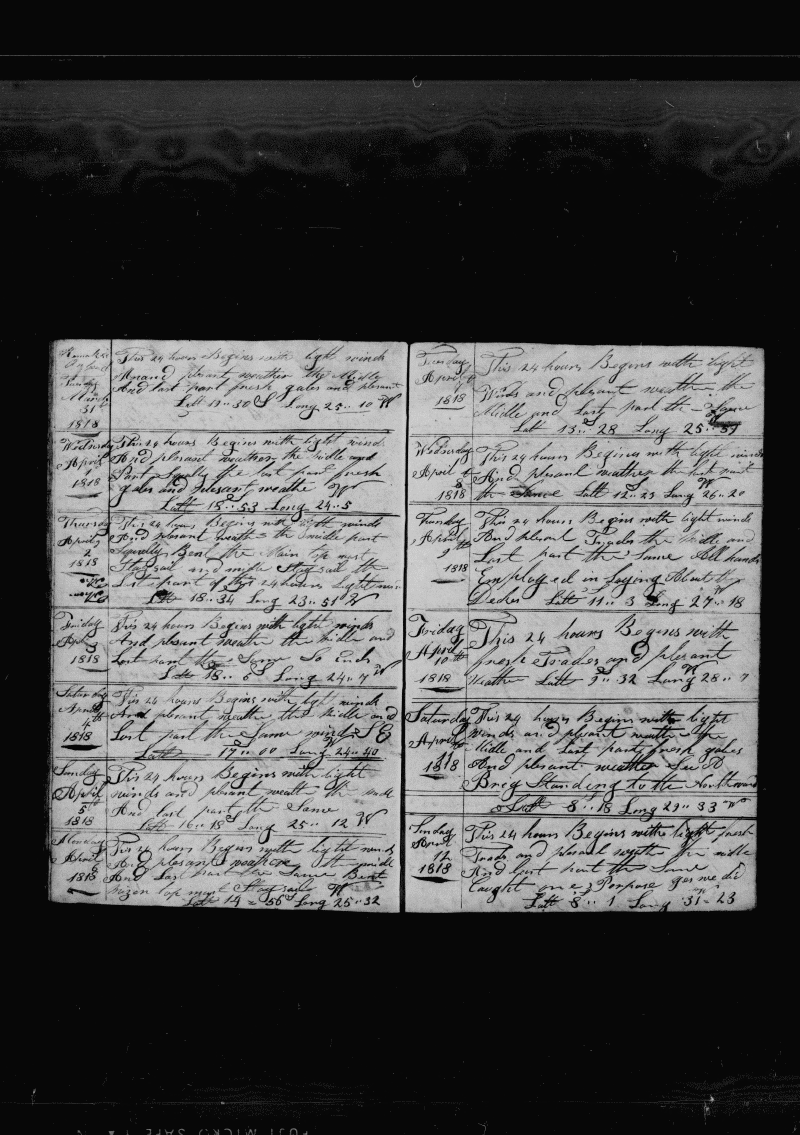 Tuesday
March
31
1818
This 24 hours Begins with light winds
and plesant weather the Midle
And last part fresh gales and plesant
Latt 19.. 30 S Long 25.. 10 W
Wednsday
April
1
1818
This 24 hours Begins with light wind
And plesant weather the Midle
Part Squaly the last part fresh
gales and plesant weathe
Latt 18.. 53 Long 24.. 5
Thursday
April
2
1818
This 24 hours Begins with light winds
And plesant weath the midle part
Squally Bent the Main top mast
Stay sail and midle Stay sail the
Last part of this 24 hours light win
Latt 18.. 34 Long 23.. 51 W
Friday
April
3
1818
This 24 hours Begins with light winds
And plesant weathe the midle and
Last part the Same So Ends
Latt 18.. 6 Long 24.. 7 W
Saturday
April
4 th
1818
This 24 hours Begins with light winds
And plesant weathe the midle and
Last part the Same winds S E
Latt 17.. 00 Long 24.. 40
Sunday
April
5
1818
This 24 hours Begins with light
winds and plesant weath the midle
And last part the Same
Latt 16.. 18 Long 25.. 12 W
Monday
April
1818
This 24 hours Begins with light winds
And plesant weather the midle
And Last part the Same Bent
mizen top mast Stay sail W
Latt 14 = 56 Long 25.. 32
Tuesday
April
1818
This 24 hours Begins with light
Winds and plesant weathe the
Midle and Last part the Same
Latt 13.. 28 Long 25.. 57
Wednsday
April
8
1818
This 24 hours Begins with light winds
And plesant weather the last part
the Same Latt 12.. 23 Long 26.. 20 W
Thursday
April
9 th
1818
This 24 hours Begins with light winds
And plesant Trades the Midle and
Last part the Same All hands
Employed in
Decks Latt 11.. 3 Long 27.. 18 W
Friday
April
10 th
1818
This 24 hours Begins with
fresh Trades and plesant
Weathe Latt 9.. 32 Long 28.. 7 W
Saturday
April
1818
This 24 hours Begins with light
winds and plesant weathe the
Midle and Last part fresh gales
And plesant weathe See A
Brig Standing to the Northward
Latt 8.. 18 Long 29.. 33 W
Sunday
April
12
1818
This 24 hours Begins with fresh
Trades and plesant weathe the midle
And last part the Same
Caught one Porpose
Latt 8.. 1 Long 31 = 23